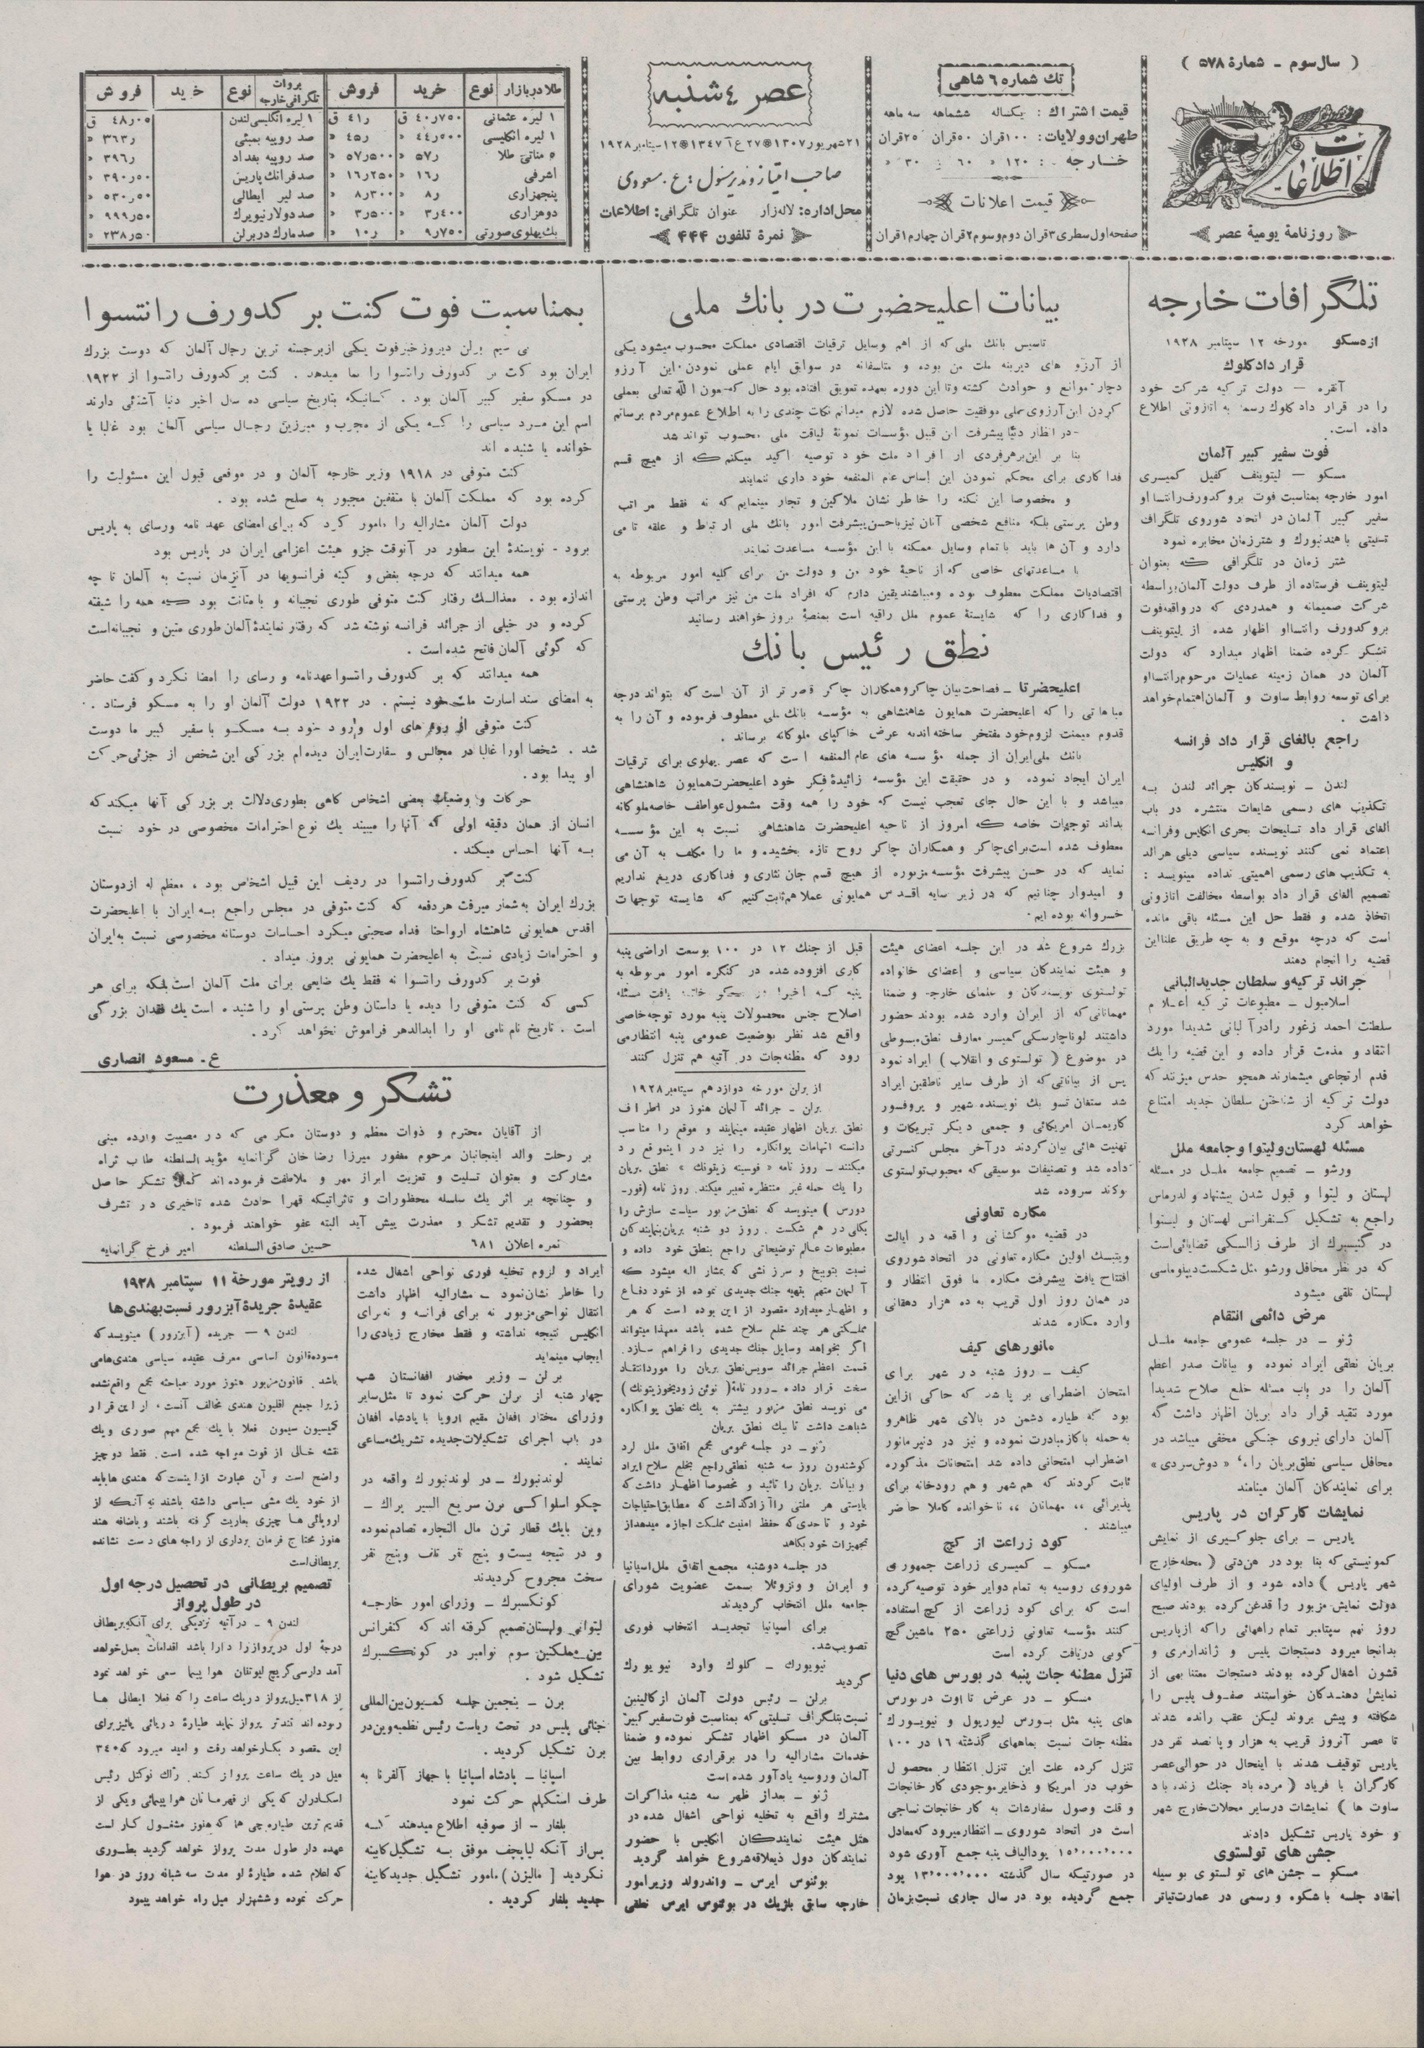 ( سال سوم ـ شمارهٔ ۵۷۸ )
اطلاعات
روزنامهٔ یومیهٔ عصر
تك شماره ۶ شاهی
قیمت اشتراك : یكساله ششماهه سه ماهه
طهران وولایات: ۱۰۰قران ۵۰قران ۲۵قران
خارجه : ۱۲۰ » ۶۰ » ۳۰ »
قیمت اعلانات
صفحه اول سطری ۳قران دوم و سوم ۲قران چهارم ۱قران
عصر ٤ شنبه
۲۱ شهریور ۱۳۰۷ ۲۷ ع۱ ۱۳٤۷ ۱۲ سپتامبر ۱۹۲۸
صاحب امتیاز ومدیر مسئول : ع . مسعودی
محل اداره: لاله‌زار عنوان تلگرافی: اطلاعات
نمره تلفون ٤٤٤
طلا در بازار نوع خرید فروش
۱ لیره عثمانی ۷۵۰ر۴۰ ق ر۴۱ ق
۱ لیره انگلیسی ۵۰۰ر۴۴ » ر۴۵ »
۵ مناتی طلا ر۵۷ » ۵۰۰ر۵۷ »
اشرفی ر۱۶ » ۲۵۰ر۱۶ »
پنجهزاری ر۸ » ۳۰۰ر۸ »
دوهزاری ۴۰۰ر۳ » ۵۰۰ر۳ »
یك پهلوی صورتی ۷۵۰ر۹ » ر۱۰ »
بروات تلگرافی خارجه نوع خرید فروش
۱ لیره انگلیسی لندن ۰۵ر۴۸ ق
صد روپیه بمبئی ر۳۶۳ »
صد روپیه بغداد ر۳۹۶ »
صد فرانك پاریس ۵۰ر۳۹۰ »
صد لیر ایطالی ۵۰ر۵۳۰ »
صد دولار نیویرك ۵۰ر۹۹۹ »
صد مارك در برلن ۵۰ر۲۳۸ »
تلگرافات خارجه
ازمسكو مورخه ۱۲ سپتامبر ۱۹۲۸
قرار داد كلوك
آنقره — دولت تركیه شركت خود
را در قرار داد كلوك رسما به اتازونی اطلاع
داده است.
فوت سفیر كبیر آلمان
مسكو — لیتوینف كفیل كمیسری
امور خارجه بمناسبت فوت بروكدورف‌رانتسا او
سفیر كبیر آلمان در اتحاد شوروی تلگراف
تسلیتی با هندنبورك و شترزمان مخابره نمود
شتر زمان در تلگرافی كه بعنوان
لیتوینف فرستاده از طرف دولت آلمان بواسطه
شركت صمیمانه و همدردی كه در واقعه فوت
بروكدورف رانتسااو اظهار شده از لیتوینف
تشكر كرده ضمنا اظهار میدارد كه دولت
آلمان در همان زمینه عملیات مرحوم رانتسااو
برای توسعه روابط ساوت و آلمان اهتمام خواهد
داشت .
راجع بالغای قرار داد فرانسه
و انگلیس
لندن ـ نویسندكان جرائد لندن به
تكذیب های رسمی شایعات منتشره در باب
الغای قرار داد تسلیحات بحری انگلیس و فرانسه
اعتماد نمی كنند نویسنده سیاسی دیلی هرالد
به تكذیب های رسمی اهمیتی نداده مینویسد :
تصمیم الغای قرار داد بواسطه مخالفت اتازونی
اتخاذ شده و فقط حل این مسئله باقی مانده
است كه درچه موقع و به چه طریق علنا این
قضیه را انجام دهند
جرائد تركیه و سلطان جدید البانی
اسلامبول ـ مطبوعات تركیه اعلام
سلطنت احمد زغور را در آلبانی شدیدا مورد
انتقاد و مذمت قرار داده و این قضیه را یك
قدم ارتجاعی میشمارند همچو حدس میزنند كه
دولت تركیه از شناختن سلطان جدید امتناع
خواهد كرد
مسئله لهستان و لیتوا و جامعه ملل
ورشو ـ تصمیم جامعه ملل در مسئله
لهستان و لیتوا و قبول شدن پیشنهاد ولدرماس
راجع به تشكیل كنفرانس لهستان و لیتوا
در كنیسبرك از طرف زالسكی قضایائی است
كه در نظر محافل ورشو مثل شكست دیپلوماسی
لهستان تلقی میشود
مرض دائمی انتقام
ژنو ـ در جلسه عمومی جامعه ملل
بریان نطقی ایراد نموده و بیانات صدر اعظم
آلمان را در باب مسئله خلع سلاح شدیدا
مورد تنقید قرار داد بریان اظهار داشت كه
آلمان دارای نیروی جنگی مخفی میباشد در
محافل سیاسی نطق بریان را » دوش سردی «
برای نمایندكان آلمان مینامند
نمایشات كارگران در پاریس
پاریس ـ برای جلوگیری از نمایش
كمونیستی كه بنا بود در هن‌دتی ( محله خارج
شهر پاریس ) داده شود و از طرف اولیای
دولت نمایش مزبور را قدغن كرده بودند صبح
روز نهم سپتامبر تمام راههائی راكه از پاریس
بدانجا میرود دستجات پلیس و ژاندارمری و
قشون اشغال كرده بودند دستجات معتنابهی از
نمایش دهندكان خواستند صفوف پلیس را
شكافته و پیش بروند لیكن عقب رانده شدند
تا عصر آنروز قریب به هزار و پانصد نفر در
پاریس توقیف شدند با اینحال در حوالی عصر
كارگران با فریاد ( مرده باد جنك زنده باد
ساوت ها ) نمایشات در سایر محلات خارج شهر
و خود پاریس تشكیل دادند
جشن های تولستوی
مسكو ـ جشن های تولستوی بوسیله
انعقاد جلسه با شكوه و رسمی در عمارت تیاتر
بیانات اعلیحضرت در بانك ملی
تاسیس بانك ملی كه از اهم وسایل ترقیات اقتصادی مملكت محسوب میشود یكی
از آرزو های دیرینه ملت من بوده و متاسفانه در سوابق ایام عملی نمودن این آرزو
دچار موانع و حوادث گشته و تا این دوره بعهده تعویق افتاده بود حال كه بعون الله تعالی بعملی
كردن این آرزوی ملی موفقیت حاصل شده لازم میدانم نكات چندی را به اطلاع عموم مردم برسانم
در انظار دنیا پیشرفت این قبیل مؤسسات نمونهٔ لیاقت ملی محسوب تواند شد
بنا بر این بر هر فردی از افراد ملت خود توصیه اكید میكنم كه از هیچ قسم
فداكاری برای محكم نمودن این اساس عام المنفعه خود داری ننمایند
و مخصوصا این نكته را خاطر نشان ملاكین و تجار مینمایم كه نه فقط مراتب
وطن پرستی بلكه منافع شخصی آنان نیز باحسن پیشرفت امور بانك ملی ارتباط و علقه تامی
دارد و آن ها باید با تمام وسایل ممكنه با این مؤسسه مساعدت نمایند
با مساعدتهای خاصی كه از ناحیهٔ خود من و دولت من برای كلیه امور مربوطه به
اقتصادیات مملكت معطوف بوده و میباشد یقین دارم كه افراد ملت من نیز مراتب وطن پرستی
و فداكاری را كه شایستهٔ عموم ملل راقیه است بمنصهٔ بروز خواهند رسانید
نطق رئیس بانك
اعلیحضرتا ـ فصاحت بیان چاكر و همكاران چاكر قاصرتر از آن است كه بتواند درجه
مباهاتی را كه اعلیحضرت همایون شاهنشاهی به مؤسسه بانك ملی معطوف فرموده و آن را به
قدوم میمنت لزوم خود مفتخر ساخته‌اند به عرض خاكپای ملوكانه برساند .
بانك ملی ایران از جمله مؤسسه های عام المنفعه است كه عصر پهلوی برای ترقیات
ایران ایجاد نموده و در حقیقت این مؤسسه زائیدهٔ فكر خود اعلیحضرت همایون شاهنشاهی
میباشد و با این حال جای تعجب نیست كه خود را همه وقت مشمول عواطف خاصه ملوكانه
بداند توجهات خاصه كه امروز از ناحیه اعلیحضرت شاهنشاهی نسبت به این مؤسسه
معطوف شده است برای چاكر و همكاران چاكر روح تازه بخشیده و ما را مكلف به آن می
نماید كه در حسن پیشرفت مؤسسه مزبوره از هیچ قسم جان نثاری و فداكاری دریغ نداریم
و امیدوار چنانیم كه در زیر سایه اقدس همایونی عملا هم ثابت كنیم كه شایسته توجهات
خسروانه بوده ایم.
بزرك شروع شد در این جلسه اعضای هیئت
و هیئت نمایندكان سیاسی و اعضای خانواده
تولستوی نویسندكان و علمای خارجه و ضمنا
مهمانانی كه از ایران وارد شده بودند حضور
داشتند لوناچارسكی كمیسر معارف نطق مبسوطی
در موضوع ( تولستوی و انقلاب ) ایراد نمود
پس از بیاناتی كه از طرف سایر ناطقین ایراد
شد ستفان تسویك نویسنده شهیر و پروفسور
كاریمان امریكائی و جمعی دیگر تبریكات و
تهنیت هائی بیان كردند در آخر مجلس كنسرتی
داده شد و تصنیفات موسیقی كه محبوب تولستوی
بودند سروده شد
مكاره تعاونی
در قضیه موكشانی واقعه در ایالت
ویتبسك اولین مكاره تعاونی در اتحاد شوروی
افتتاح یافت پیشرفت مكاره ما فوق انتظار و
در همان روز اول قریب به ده هزار دهقانی
وارد مكاره شدند
مانورهای كیف
كیف ـ روز شنبه در شهر برای
امتحان اضطرابی بر پا شد كه حاكی از این
بود كه طیاره دشمن در بالای شهر ظاهر و
به حمله با گاز مبادرت نموده و نیز در دنپر مانور
اضطراب امتحانی داده شد امتحانات مذكوره
ثابت كردند كه هم شهر و هم رودخانه برای
پذیرائی ،، مهمانان ،، ناخوانده كاملا حاضر
میباشند .
كود زراعت از كچ
مسكو ـ كمیسری زراعت جمهوری
شوروی روسیه به تمام دوایر خود توصیه كرده
است كه برای كود زراعت از كچ استفاده
كنند مؤسسه تعاونی زراعتی ۲۵۰ ماشین گچ
كوبی دریافت كرده است
تنزل مظنه جات پنبه در بورس های دنیا
مسكو ـ در عرض تا اوت در بورس
های پنبه مثل بورس لیورپول و نیویورك
مظنه جات نسبت بماههای گذشته ۱۶ در ۱۰۰
تنزل كرده علت این تنزل انتظار محصول
خوب در امریكا و ذخایر موجودی كارخانجات
و قلت وصول سفارشات به كارخانجات نساجی
است در اتحاد شوروی ـ انتظار میرود كه معادل
۱۵٬۰۰۰٬۰۰۰ پود الیاف پنبه جمع آوری شود
در صورتیكه سال گذشته ۱۳٬۰۰۰٬۰۰۰ پود
جمع گردیده بود در سال جاری نسبت بزمان
قبل از جنك ۱۲ در ۱۰۰ بوسعت اراضی پنبه
كاری افزوده شده در كنگره امور مربوطه به
پنبه كه اخیرا در مسكو خاتمه یافت مسئله
اصلاح جنس محصولات پنبه مورد توجه خاصی
واقع شد نظر بوضعیت عمومی پنبه انتظار می
رود كه مظنه‌جات در آتیه هم تنزل كنند
از برلن مورخه دوازدهم سپتامبر ۱۹۲۸
برلن ـ جرائد آلمان هنوز در اطراف
نطق بریان اظهار عقیده مینمایند و موقع را مناسب
دانسته اتهامات پوانكاره را نیز در اینموقع رد
میكنند ـ روز نامه » فوسیشه زیتونك « نطق بریان
را یك حمله غیر منتظره تعبیر میكند. روز نامه (فور-
دورس ) مینویسد كه نطق مزبور سیاست سازش را
بكلی در هم شكست . روز دو شنبه بریان بنمایندكان
مطبوعات عالم توضیحاتی راجع بنطق خود داده و
نسبت بتوبیخ و سرزنشی كه بمشار الیه میشود كه
آلمان متهم بتهیه جنك جدیدی نموده از خود دفاع
و اظهار میدارد مقصود از این بوده است كه هر
مملكتی هر چند خلع سلاح شده باشد معهذا میتواند
اگر بخواهد وسایل جنك جدیدی را فراهم سازد.
قسمت اعظم جرائد سویس نطق بریان را مورد انتقاد
سخت قرار داده ـ روز نامهٔ( نوئن زودیخوزیتونك )
می نویسد نطق مزبور بیشتر به یك نطق پوانكاره
شباهت داشت تا بیك نطق بریان
ژنو ـ در جلسه عمومی مجمع اتفاق ملل لرد
كوشندون روز سه شنبه نطقی راجع بخلع سلاح ایراد
و بیانات بریان را تائید و مخصوصا اظهار داشت كه
بایستی هر ملتی را آزاد گذاشت كه مطابق احتیاجات
خود و تا حدی كه حفظ امنیت مملكت اجازه میدهد از
تجهیزات خود بكاهد
در جلسه دوشنبه مجمع اتفاق ملل اسپانیا
و ایران و ونزوئلا بسمت عضویت شورای
جامعه ملل انتخاب گردیدند
برای اسپانیا تجدید انتخاب فوری
تصویب شد.
نیویورك ـ كلوك وارد نیویورك
گردید
برلن ـ رئیس دولت آلمان از كالینین
نسبت بتلگراف تسلیتی كه بمناسبت فوت سفیر كبیر
آلمان در مسكو اظهار تشكر نموده و ضمنا
خدمات مشارالیه را در برقراری روابط بین
آلمان وروسیه یادآور شده است
ژنو ـ بعداز ظهر سه شنبه مذاكرات
مشترك واقع به تخلیه نواحی اشغال شده در
هتل هیئت نمایندكان انگلیس با حضور
نمایندكان دول ذیعلاقه شروع خواهد گردید
بوئنوس ایرس ـ واندرولد وزیر امور
خارجه سابق بلژیك در بوئنوس ایرس نطقی
بمناسبت فوت كنت بر كدورف رانتسوا
بی سیم برلن دیروز خبر فوت یكی از برجسته ترین رجال آلمان كه دوست بزرك
ایران بود كنت بر كدورف رانتسوا را بما میدهد . كنت بر كدورف رانتسوا از ۱۹۲۲
در مسكو سفیر كبیر آلمان بود . كسانیكه بتاریخ سیاسی ده سال اخیر دنیا آشنائی دارند
اسم این مرد سیاسی را كه یكی از مجرب و مبرزین رجال سیاسی آلمان بود غالبا یا
خوانده یا شنیده اند
كنت متوفی در ۱۹۱۸ وزیر خارجه آلمان و در موقعی قبول این مسئولیت را
كرده بود كه مملكت آلمان با متفقین مجبور به صلح شده بود .
دولت آلمان مشارالیه را مامور كرد كه برای امضای عهد نامه ورسای به پاریس
برود ـ نویسندهٔ این سطور در آنوقت جزو هیئت اعزامی ایران در پاریس بود
همه میدانند كه درجه بغض و كینه فرانسویها در آنزمان نسبت به آلمان تا چه
اندازه بود . معذالك رفتار كنت متوفی طوری نجیبانه و با متانت بود كه همه را شیفته
كرده و در خیلی از جرائد فرانسه نوشته شد كه رفتار نمایندهٔ آلمان طوری متین و نجیبانه است
كه گوئی آلمان فاتح شده است .
همه میدانند كه بر كدورف رانتسوا عهدنامه ورسای را امضا نكرد و گفت حاضر
به امضای سند اسارت ملت خود نیستم . در ۱۹۲۲ دولت آلمان او را به مسكو فرستاد .
كنت متوفی از روز های اول ورود خود به مسكو با سفیر كبیر ما دوست
شد . شخصا اورا غالبا در مجالس و سفارت ایران دیده ام بزرگی این شخص از جزئی حركت
او پیدا بود .
حركات و وضعیات بعضی اشخاص گاهی بطوری دلالت بر بزرگی آنها میكند كه
انسان از همان دقیقه اولی كه آنها را میبیند یك نوع احترامات مخصوصی در خود نسبت
به آنها احساس میكند .
كنت بر كدورف رانتسوا در ردیف این قبیل اشخاص بود . معظم له از دوستان
بزرك ایران به شمار میرفت هردفعه كه كنت متوفی در مجلس راجع به ایران با اعلیحضرت
اقدس همایونی شاهنشاه ارواحنا فداه صحبتی میكرد احساسات دوستانه مخصوصی نسبت به ایران
و احترامات زیادی نسبت به اعلیحضرت همایونی بروز میداد .
فوت بر كدورف رانتسوا نه فقط یك ضایعی برای ملت آلمان است بلكه برای هر
كسی كه كنت متوفی را دیده یا داستان وطن پرستی او را شنیده است یك فقدان بزرگی
است . تاریخ نام نامی او را ابدالدهر فراموش نخواهد كرد .
ع. مسعود انصاری
تشكر و معذرت
از آقایان محترم و ذوات معظم و دوستان مكرمی كه در مصیبت وارده مبنی
بر رحلت والد اینجانبان مرحوم مغفور میرزا رضا خان گرانمایه مؤید السلطنه طاب ثراه
مشاركت و بعنوان تسلیت و تعزیت ابراز مهر و ملاطفت فرموده اند كمال تشكر حاصل
و چنانچه بر اثر یك سلسله محظورات و تاثراتیكه قهرا حادث شده تاخیری در تشرف
بحضور و تقدیم تشكر و معذرت پیش آید البته عفو خواهند فرمود .
نمره اعلان ۶۸۱ حسین صادق السلطنه امیر فرخ گرانمایه
ایراد و لزوم تخلیه فوری نواحی اشغال شده
را خاطر نشان نمود ـ مشارالیه اظهار داشت
انتقال نواحی مزبور نه برای فرانسه و نه برای
انگلیس نتیجه نداشته و فقط مخارج زیادی را
ایجاب مینماید
برلن ـ وزیر مختار افغانستان شب
چهار شنبه از برلن حركت نمود تا مثل سایر
وزرای مختار افغان مقیم اروپا با پادشاه افغان
در باب اجرای تشكیلات جدیده تشریك مساعی
نمایند .
لوندنبورك ـ در لوندنبورك واقعه در
چكو اسلواكی ترن سریع السیر پراك ـ
وین بایك قطار ترن مال التجاره تصادم نموده
و در نتیجه بیست و پنج نفر تلف و پنج نفر
سخت مجروح گردیدند
كونكسبرك ـ وزرای امور خارجه
لیتوانی و لهستان تصمیم گرفته اند كه كنفرانس
بین مملكتین سوم نوامبر در كونكسبرك
تشكیل شود .
برن ـ پنجمین جلسه كمیسیون بین‌المللی
جنائی پلیس در تحت ریاست رئیس نظمیه وین در
برن تشكیل گردید .
اسپانیا ـ پادشاه اسپانیا با جهاز آلفرنا به
طرف استكهلم حركت نمود
بلغار ـ از صوفیه اطلاع میدهند كه
پس از آنكه لیاپچف موفق به تشكیل كابینه
نكردید [ مالیزن] مامور تشكیل جدید كابینه
جدید بلغار گردید .
از رویتر مورخهٔ ۱۱ سپتامبر ۱۹۲۸
عقیدهٔ جریدهٔ آبزرور نسبت بهندی‌ها
لندن ۹ — جریده (آبزرور) مینویسد كه
مسوده قانون اساسی معرف عقیده سیاسی هندی‌ها می
باشد. قانون مزبور هنوز مورد مباحثه مجمع واقع نشده
زیرا جمیع اقلیون هندی مخالف آنست. از این قرار
كمیسیون سیمون فعلا با یك مجمع مهم صوری ویك
نقشه خالی از قوت مواجه شده است. فقط دو چیز
واضح است و آن عبارت از اینست كه هندی ها باید
از خود یك مشی سیاسی داشته باشند نه آنكه از
اروپائی ها چیزی بعاریت گرفته باشند و باضافه هند
هنوز محتاج فرمان برداری از راجه های دست نشانده
بریطانی است
تصمیم بریطانی در تحصیل درجه اول
در طول پرواز
لندن ۹ ـ در آتیه نزدیكی برای آنكه بریطانی
درجهٔ اول در پرواز را دارا باشد اقداماتی بعمل خواهد
آمد دارسی گریج لیوتنان هوا پیما سعی خواهد نمود
از ۳۱۸ میل پرواز در یك ساعت را كه فعلا ایطالی ها
ربوده اند تندتر پرواز نماید طیارهٔ دریائی پائیز برای
این مقصود بكار خواهد رفت و امید میرود كه ۳۴۰
میل در یك ساعت پرواز كند. ژاك نوكتل رئیس
اسكادران كه یكی از قهرمانان هوا پیمائی ویكی از
قدیم ترین طیاره چی ها كه هنوز مشغول كار است
عهده دار طول مدت پرواز خواهد گردید بطوری
كه اعلام شده طیارهٔ او مدت سه شبانه روز در هوا
حركت نموده و ششهزار میل راه خواهد پیمود